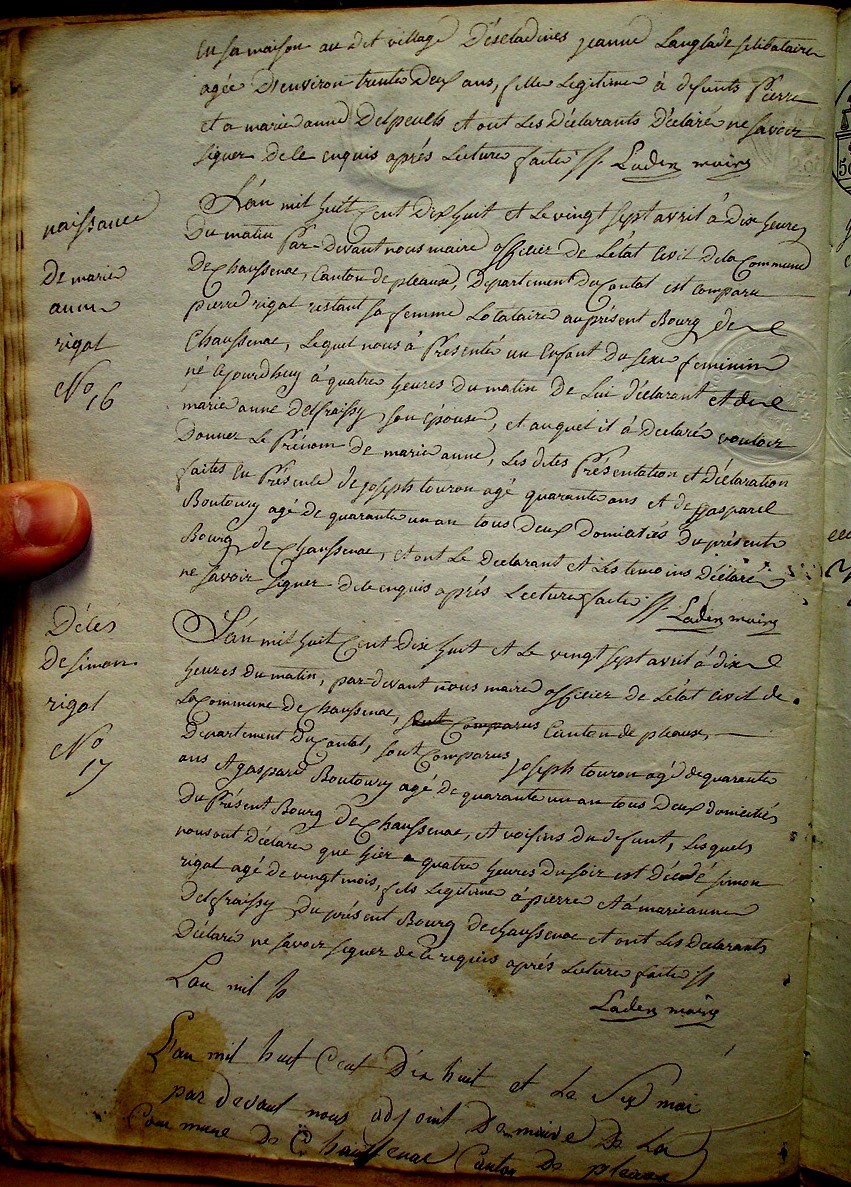 en sa maison au dit village Déseladines jeanne Langlade selibataire
agée D'environ trente Deux ans, fille Legitime à defunts Pierre
et a marie anne Delpeuch et ont Les Déclarants Déclaré ne savoir
signer de le enquis aprés Lecture faite //. Laden maire
naissance
De marie
anne
rigal
No
16
L'an mil huit Cent Dix huit et Le vingt sept avril à Dix heures
Du matin Par-Devant nous maire officier de L'état Civil de la Commune
De Chaussenac, Canton de pleaux, Département du Cantal est comparu
pierre rigal restant sa femme Locataire au présent Bourg de
Chaussenac, Lequel nous à Présenté un Enfant du sexe feminin
né ajourdhuy à quatre heures du matin De Lui déclarant et de
marie anne Delfraissy son epouse, et auquel il à Declaré vouloir
Donner Le Prénom de marie anne, Les dites Présentation et Déclaration
faites En Présence de joseph touron agé quarante ans et de gasparel
Boutoury agé de quarante un an tous Deux Domiciliés Du présent
Bourg de Chaussenac, et ont Le Declarant et Les temoins Déclaré
ne savoir signer de le enquis aprés Lecture faite //. Laden maire
Décés
De simon
rigal
No
17
L'an mil huit Cent Dix huit et Le vingt sept avril à dix
heures du matin, par-devant nous maire officier de L'état Civil de
La Commune De Chaussenac, sont Comparus Canton de pleaux,
Departement Du Cantal, sont Comparus joseph touron agé de quarante
ans et gasparel Boutoury agé de quarante un an tous Deux domiciliés
Du Présent Bourg De Chaussenac, et voisins du defunt, Lesquels
nous ont Déclaré que hier a quatre heures du soir est Décedé simon
rigal agé de vingt mois, fils Legitime à pierre et à marie anne
Delfraissy du présent Bourg de chaussenac et ont Les Declarants
Déclaré ne savoir signer de le requis aprés Lecture faite //
Laden maire
L'an mil h
L'an mil huit Cent Dix huit et Le Six mai
par devant nous adjoint De maire De La
Commune De Chaussenac Canton De pleaux